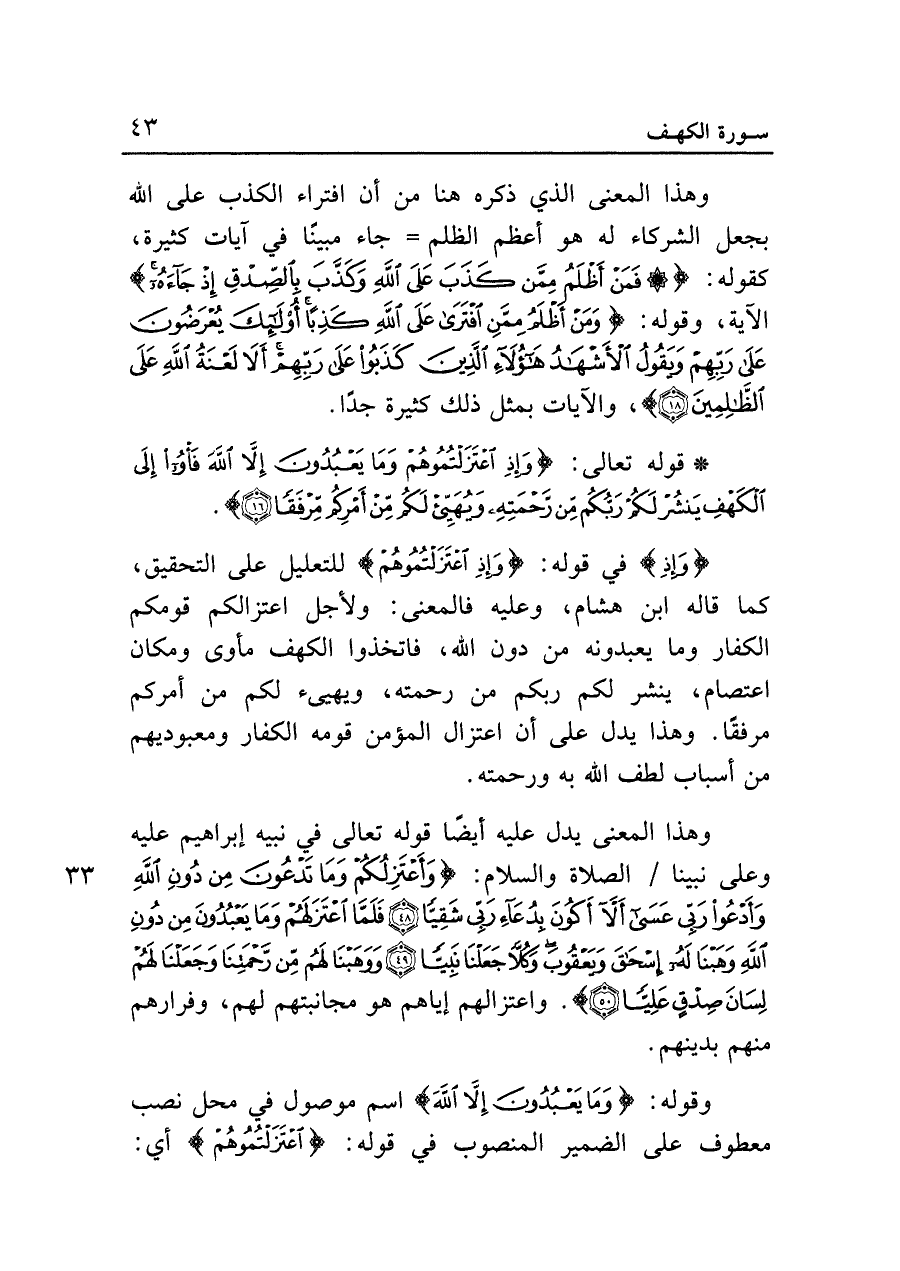 سورة الكهف ٤٣
وهذا المعنى الذي ذكره هنا من أن افتراء الكذب على الله
بجعل الشركاء له هو أعظم الظلم = جاء مبينًا في آيات كثيرة،
كقوله: ﴿۞ فَمَنْ أَظْلَمُ مِمَّن كَذَبَ عَلَى ٱللَّهِ وَكَذَّبَ بِٱلصِّدْقِ إِذْ جَآءَهُۥٓۚ﴾
الآية، وقوله: ﴿وَمَنْ أَظْلَمُ مِمَّنِ ٱفْتَرَىٰ عَلَى ٱللَّهِ كَذِبًاۚ أُوْلَٰٓئِكَ يُعْرَضُونَ
عَلَىٰ رَبِّهِمْ وَيَقُولُ ٱلْأَشْهَٰدُ هَٰٓؤُلَآءِ ٱلَّذِينَ كَذَبُوا۟ عَلَىٰ رَبِّهِمْۚ أَلَا لَعْنَةُ ٱللَّهِ عَلَى
ٱلظَّٰلِمِينَ ١٨﴾، والآيات بمثل ذلك كثيرة جدًا.
* قوله تعالى: ﴿وَإِذِ ٱعْتَزَلْتُمُوهُمْ وَمَا يَعْبُدُونَ إِلَّا ٱللَّهَ فَأْوُۥٓا۟ إِلَى
ٱلْكَهْفِ يَنشُرْ لَكُمْ رَبُّكُم مِّن رَّحْمَتِهِۦ وَيُهَيِّئْ لَكُم مِّنْ أَمْرِكُم مِّرْفَقًا ١٦﴾.
﴿وَإِذِ﴾ في قوله: ﴿وَإِذِ ٱعْتَزَلْتُمُوهُمْ﴾ للتعليل على التحقيق،
كما قاله ابن هشام، وعليه فالمعنى: ولأجل اعتزالكم قومكم
الكفار وما يعبدونه من دون الله، فاتخذوا الكهف مأوى ومكان
اعتصام، ينشر لكم ربكم من رحمته، ويهيىء لكم من أمركم
مرفقًا. وهذا يدل على أن اعتزال المؤمن قومه الكفار ومعبوديهم
من أسباب لطف الله به ورحمته.
وهذا المعنى يدل عليه أيضًا قوله تعالى في نبيه إبراهيم عليه
وعلى نبينا / الصلاة والسلام: ﴿وَأَعْتَزِلُكُمْ وَمَا تَدْعُونَ مِن دُونِ ٱللَّهِ ٣٣
وَأَدْعُوا۟ رَبِّى عَسَىٰٓ أَلَّآ أَكُونَ بِدُعَآءِ رَبِّى شَقِيًّا ٤٨ فَلَمَّا ٱعْتَزَلَهُمْ وَمَا يَعْبُدُونَ مِن دُونِ
ٱللَّهِ وَهَبْنَا لَهُۥٓ إِسْحَٰقَ وَيَعْقُوبَۖ وَكُلًّا جَعَلْنَا نَبِيًّا ٤٩ وَوَهَبْنَا لَهُم مِّن رَّحْمَتِنَا وَجَعَلْنَا لَهُمْ
لِسَانَ صِدْقٍ عَلِيًّا ٥٠﴾. واعتزالهم إياهم هو مجانبتهم لهم، وفرارهم
منهم بدينهم.
وقوله: ﴿وَمَا يَعْبُدُونَ إِلَّا ٱللَّهَ﴾ اسم موصول في محل نصب
معطوف على الضمير المنصوب في قوله: ﴿ٱعْتَزَلْتُمُوهُمْ﴾ أي: